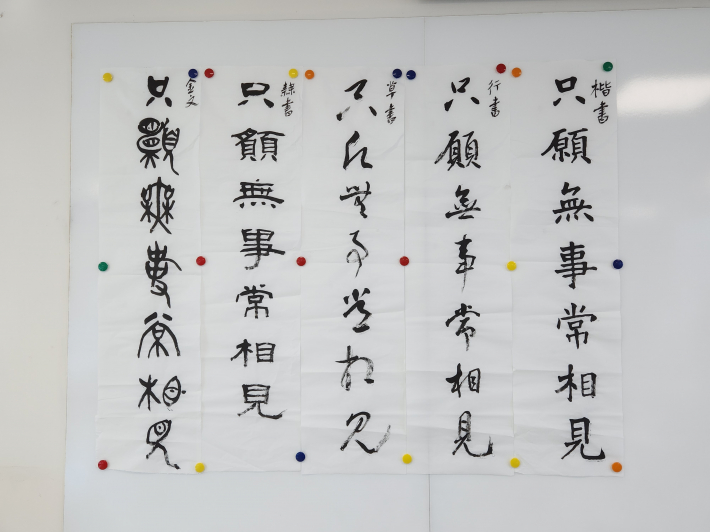 楷書
只願無事常相見
行書
只願無事常相見
草書
只願無事常相見
隸書
只願無事常相見
金文
只願無事常相見